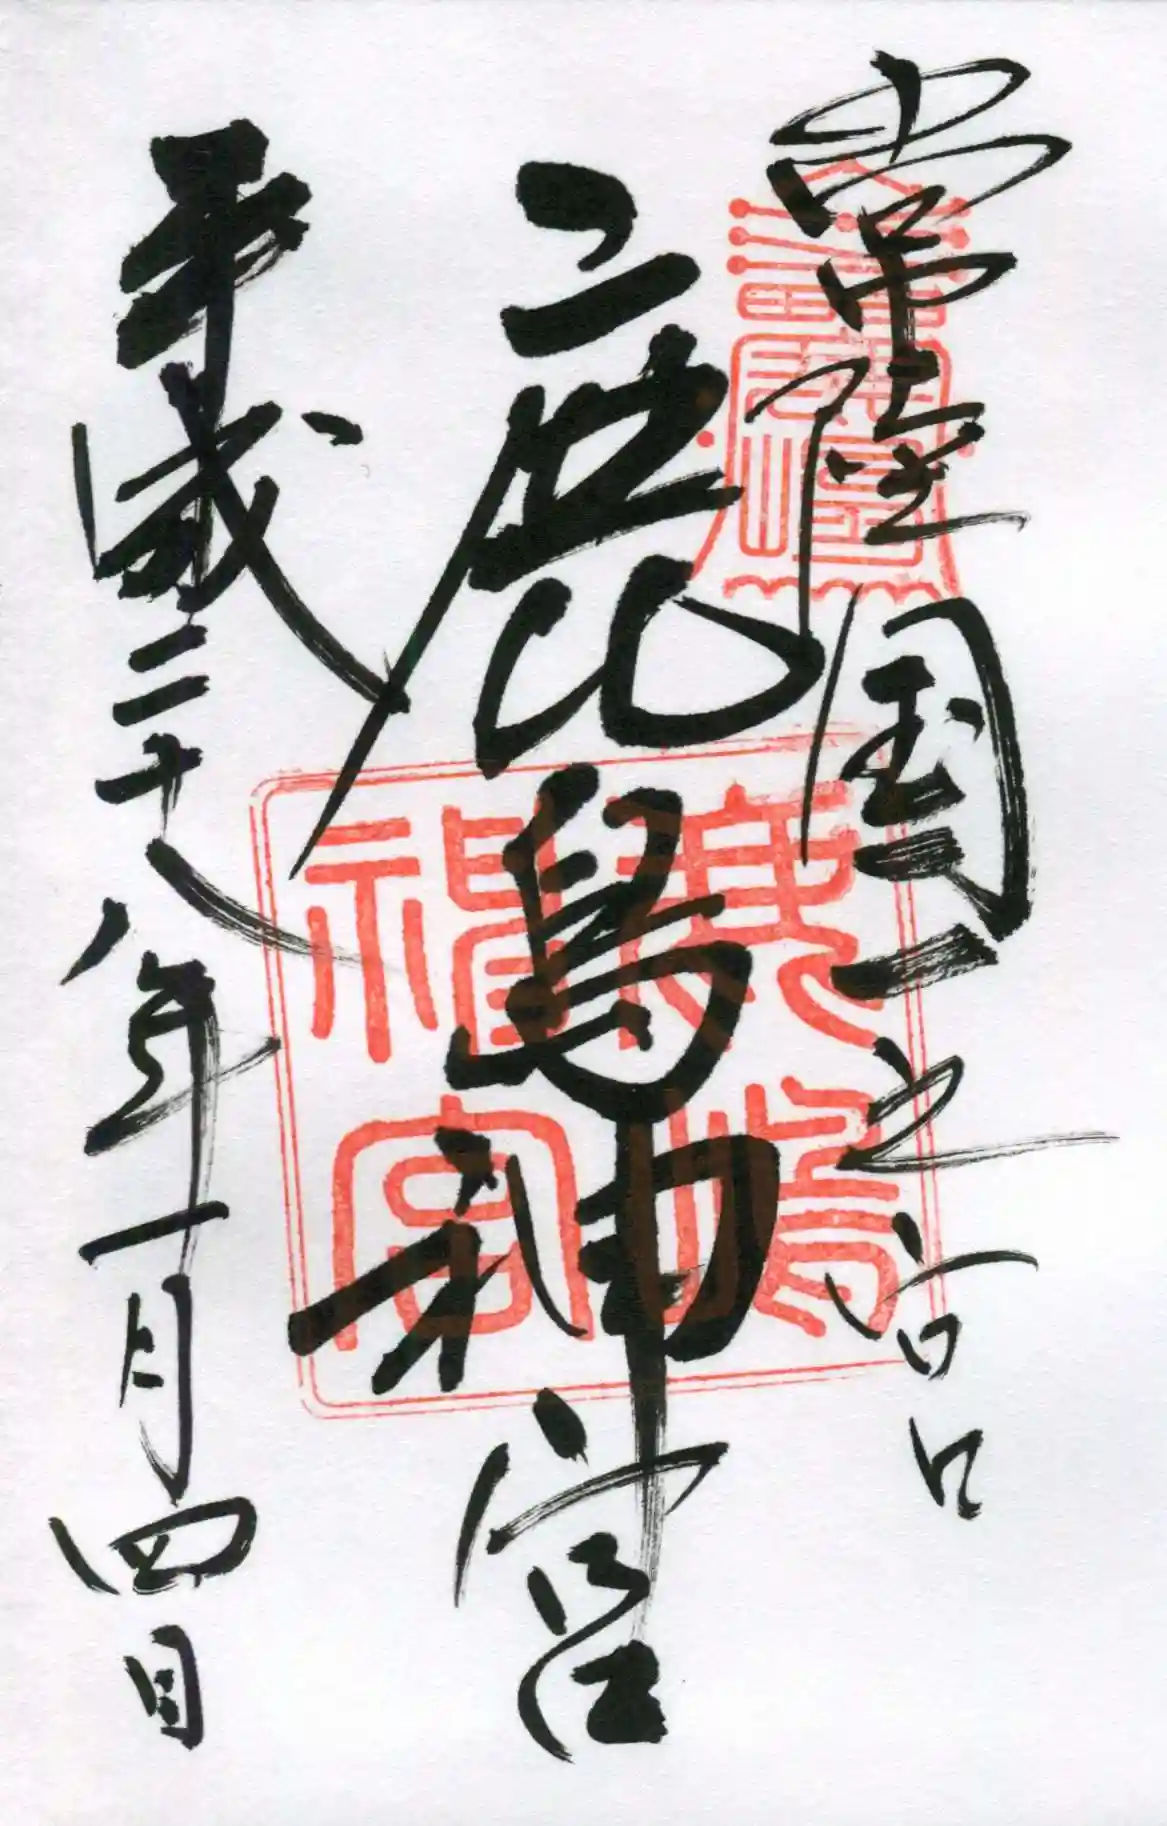 常陸国一之宮
鹿島神宮
平成二十八年一月四日
鹿嶋
神宮